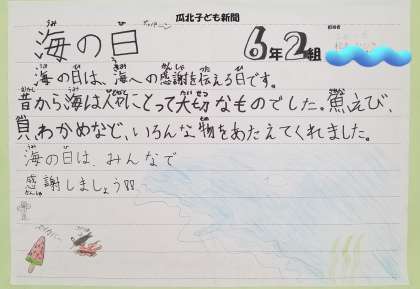 瓜北子ども新聞
海の日
6年2組
海の日は、海への感謝を伝える日です。
昔から海は人間にとって大切なものでした。魚、えび、
貝、わかめなど、いろんな物をあたえてくれました。
海の日は、みんなで
感謝しましょう!!